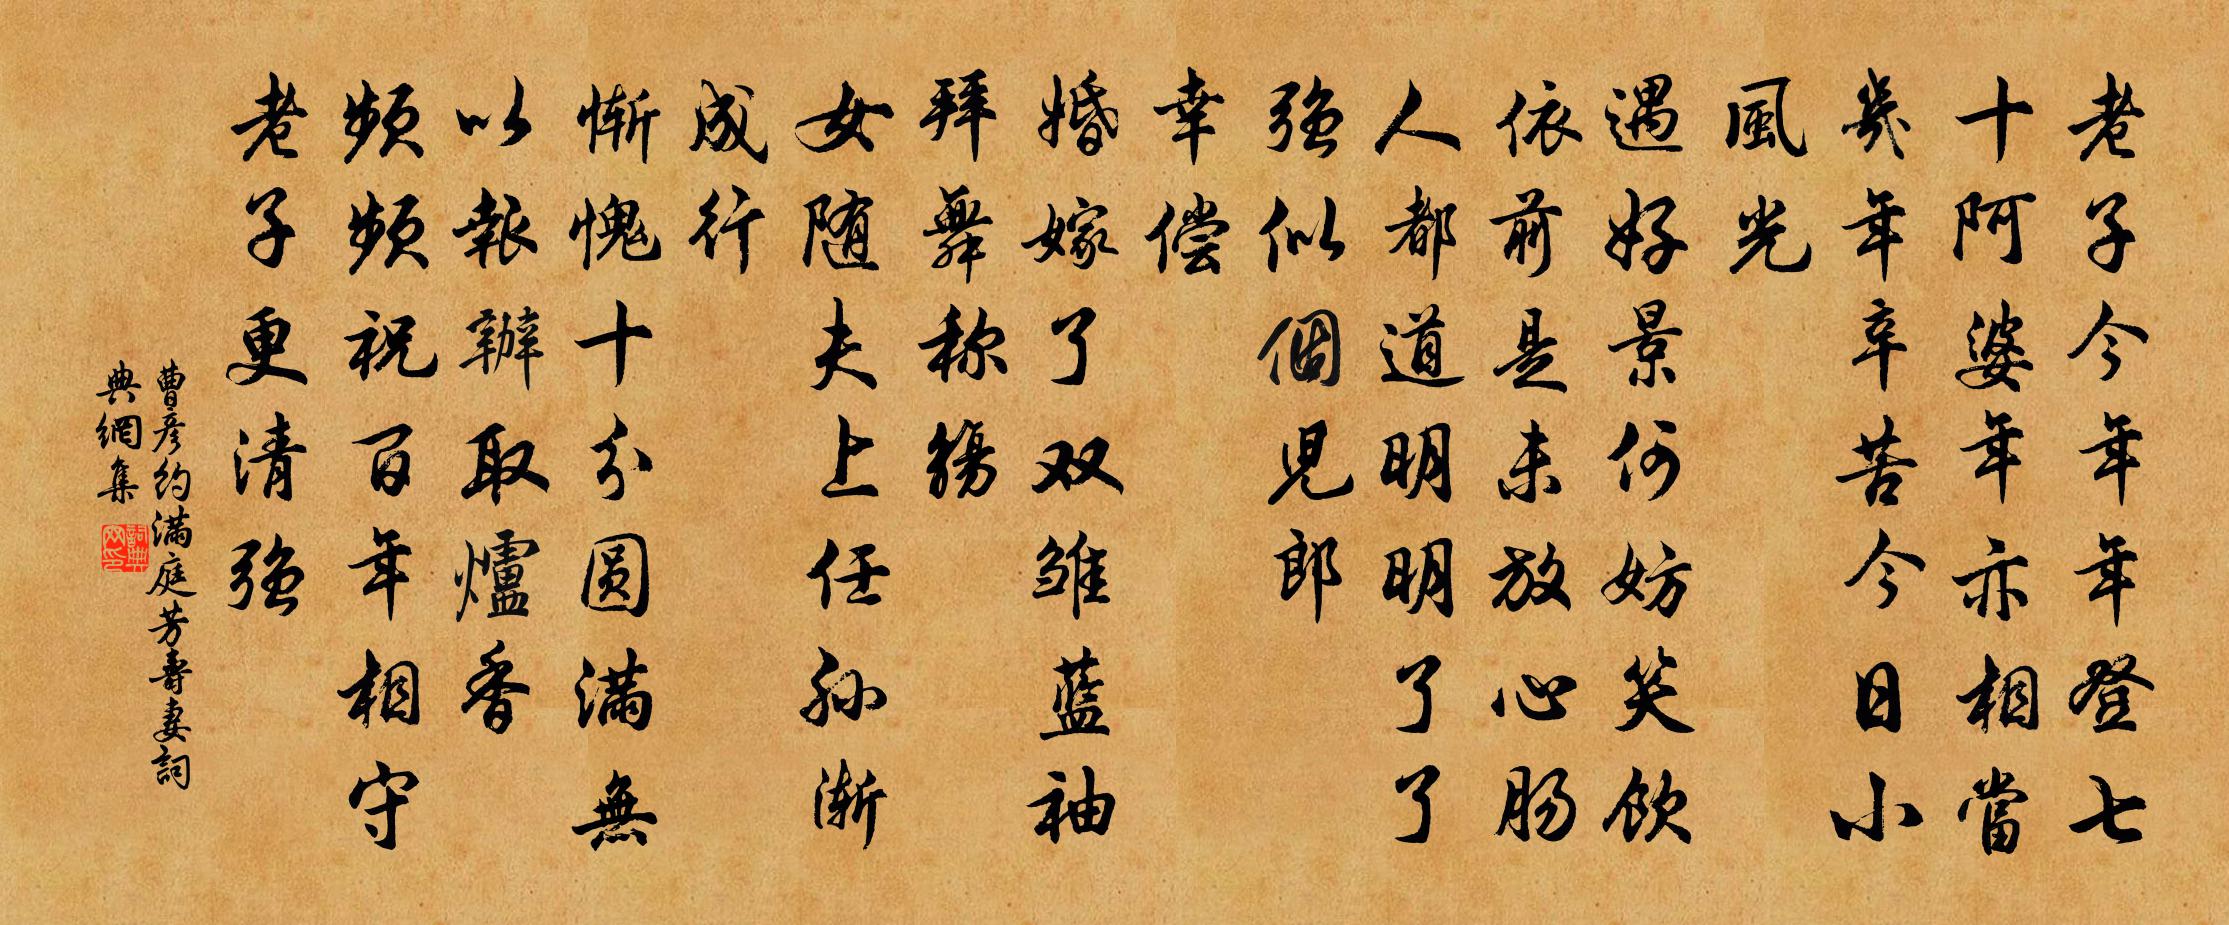 老子今年年登七
十阿婆年亦相當
幾年辛苦今日小
風光
遇好景何妨笑飲
依前是未放心肠
人都道明明了了
强似個児郎
幸偿
婚嫁了双雏蓝袖
拜舞称觞
女随夫上任孙渐
成行
惭愧十分圆满無
以報辦取爐香
頻頻祝百年相守
老子更清强
曹彦约满庭芳壽妻詞
典網集
詞典網印